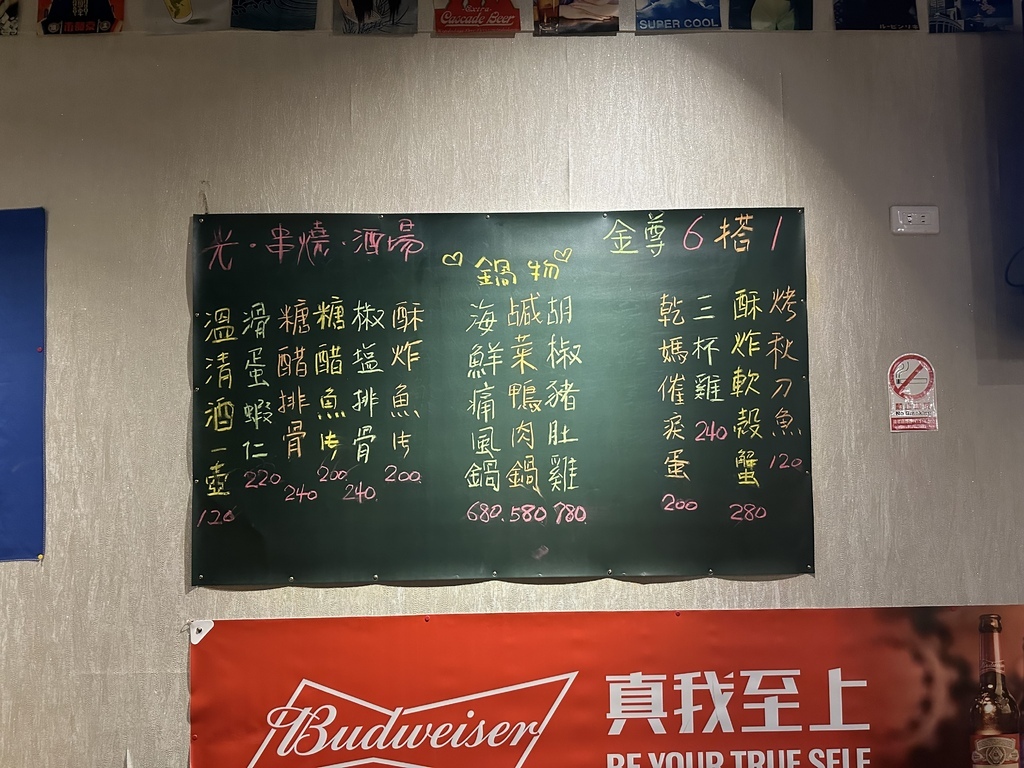 Cascade Beer
SUPER COOL
光・串燒・酒場
金尊6搭1
鍋物
烤秋刀魚 120
酥炸軟殼蟹 280
三杯雞 240
乾媽催淚蛋 200
胡椒豬肚雞 780
鹹菜鴨肉鍋 580
海鮮痛風鍋 680
酥炸魚片 200
椒塩排骨 240
糖醋魚片 200
糖醋排骨 240
滑蛋蝦仁 220
溫清酒一壺 120
Budweiser
真我至上
BE YOUR TRUE SELF